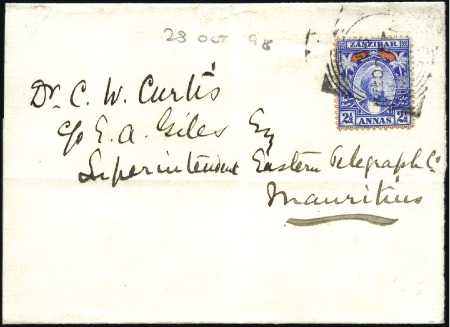 28 OCT 98
ZANZIBAR
2½ ANNAS 2½
Dr. C. W. Curtis
c/o E. A. Giles Esq
Superintendent Eastern Telegraph Co
Mauritius